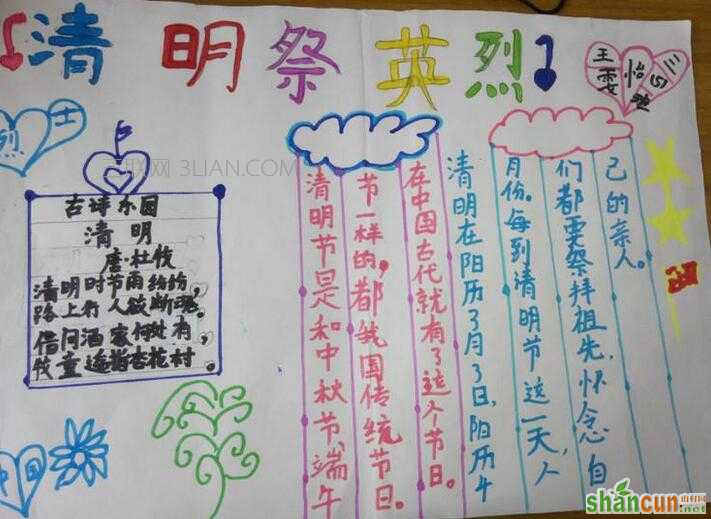 清明祭英烈
王雯怡
烈士
三联网 3LIAN.COM
古诗乐园
清明
唐·杜牧
清明时节雨纷纷，
路上行人欲断魂。
借问酒家何处有，
牧童遥指杏花村。
清明节是和中秋节、端午
节一样的，都我国传统节日。
在中国古代就有了这个节日。
清明在阳历3月3日，阳历4
月份。每到清明节这一天，人
们都要祭拜祖先，怀念自
己的亲人。
中国
shancun
山村网
.net